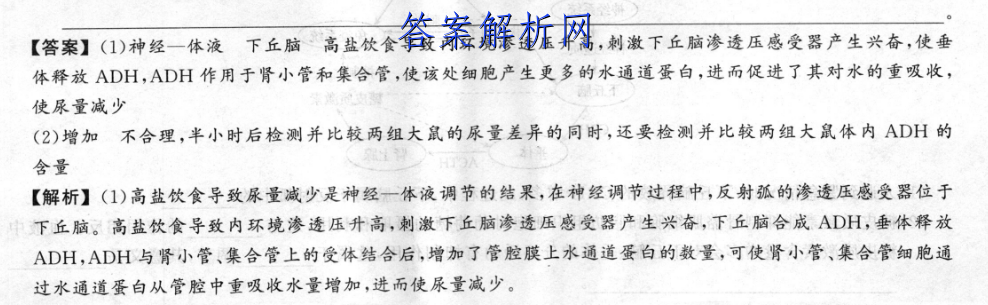 答案解析网
。
【答案】(1)神经—体液　下丘脑　高盐饮食导致内环境渗透压升高,刺激下丘脑渗透压感受器产生兴奋,使垂
体释放 ADH,ADH 作用于肾小管和集合管,使该处细胞产生更多的水通道蛋白,进而促进了其对水的重吸收,
使尿量减少
(2)增加　不合理,半小时后检测并比较两组大鼠的尿量差异的同时,还要检测并比较两组大鼠体内 ADH 的
含量
【解析】(1)高盐饮食导致尿量减少是神经—体液调节的结果,在神经调节过程中,反射弧的渗透压感受器位于
下丘脑。高盐饮食导致内环境渗透压升高,刺激下丘脑渗透压感受器产生兴奋,下丘脑合成 ADH,垂体释放
ADH,ADH 与肾小管、集合管上的受体结合后,增加了管腔膜上水通道蛋白的数量,可使肾小管、集合管细胞通
过水通道蛋白从管腔中重吸收水量增加,进而使尿量减少。